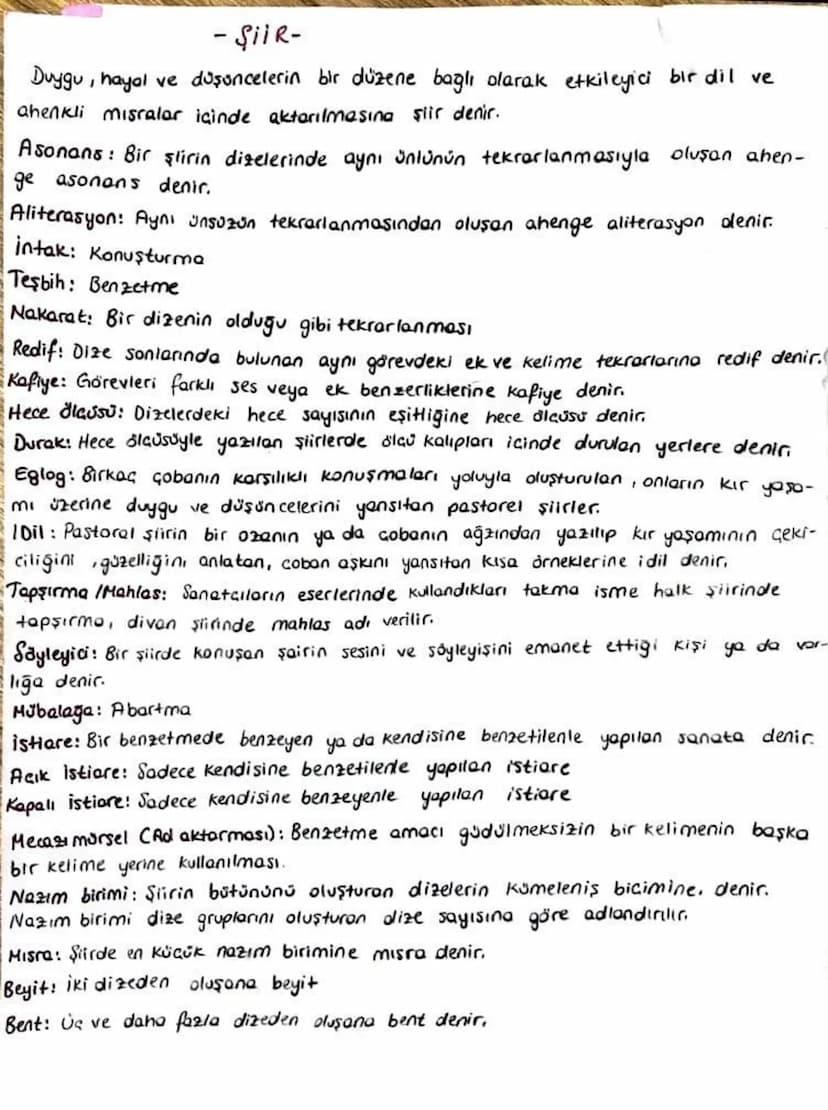 - ŞİİR -
Duygu, hayal ve düşüncelerin bir düzene bağlı olarak etkileyici bir dil ve
ahenkli mısralar içinde aktarılmasına şiir denir.
Asonans: Bir şiirin dizelerinde aynı ünlünün tekrarlanmasıyla oluşan ahen-
ge asonans denir.
Aliterasyon: Aynı ünsüzün tekrarlanmasından oluşan ahenge aliterasyon denir.
İntak: Konuşturma
Teşbih: Benzetme
Nakarat: Bir dizenin olduğu gibi tekrarlanması
Redif: Dize sonlarında bulunan aynı görevdeki ek ve kelime tekrarlarına redif denir.
Kafiye: Görevleri farklı ses veya ek benzerliklerine kafiye denir.
Hece ölçüsü: Dizelerdeki hece sayısının eşitliğine hece ölçüsü denir.
Durak: Hece ölçüsüyle yazılan şiirlerde ölçü kalıpları içinde durulan yerlere denir.
Eglog: Birkaç çobanın karşılıklı konuşmaları yoluyla oluşturulan, onların kır yaşa-
mı üzerine duygu ve düşüncelerini yansıtan pastorel şiirler.
İDil: Pastoral şiirin bir ozanın ya da çobanın ağzından yazılıp kır yaşamının çeki-
ciliğini, güzelliğini anlatan, çoban aşkını yansıtan kısa örneklerine idil denir.
Tapşırma / Mahlas: Sanatçıların eserlerinde kullandıkları takma isme halk şiirinde
tapşırma, divan şiirinde mahlas adı verilir.
Söyleyici: Bir şiirde konuşan şairin sesini ve söyleyişini emanet ettiği kişi ya da var-
lığa denir.
Mübalağa: Abartma
İstiare: Bir benzetmede benzeyen ya da kendisine benzetilenle yapılan sanata denir.
Açık İstiare: Sadece kendisine benzetilenle yapılan istiare
Kapalı istiare: Sadece kendisine benzeyenle yapılan istiare
Mecazı mürsel (Ad aktarması): Benzetme amacı güdülmeksizin bir kelimenin başka
bir kelime yerine kullanılması.
Nazım birimi: Şiirin bütününü oluşturan dizelerin kümeleniş biçimine. denir.
Nazım birimi dize gruplarını oluşturan dize sayısına göre adlandırılır.
Mısra: Şiirde en küçük nazım birimine mısra denir.
Beyit: İki dizeden oluşana beyit
Bent: Üç ve daha fazla dizeden oluşana bent denir.